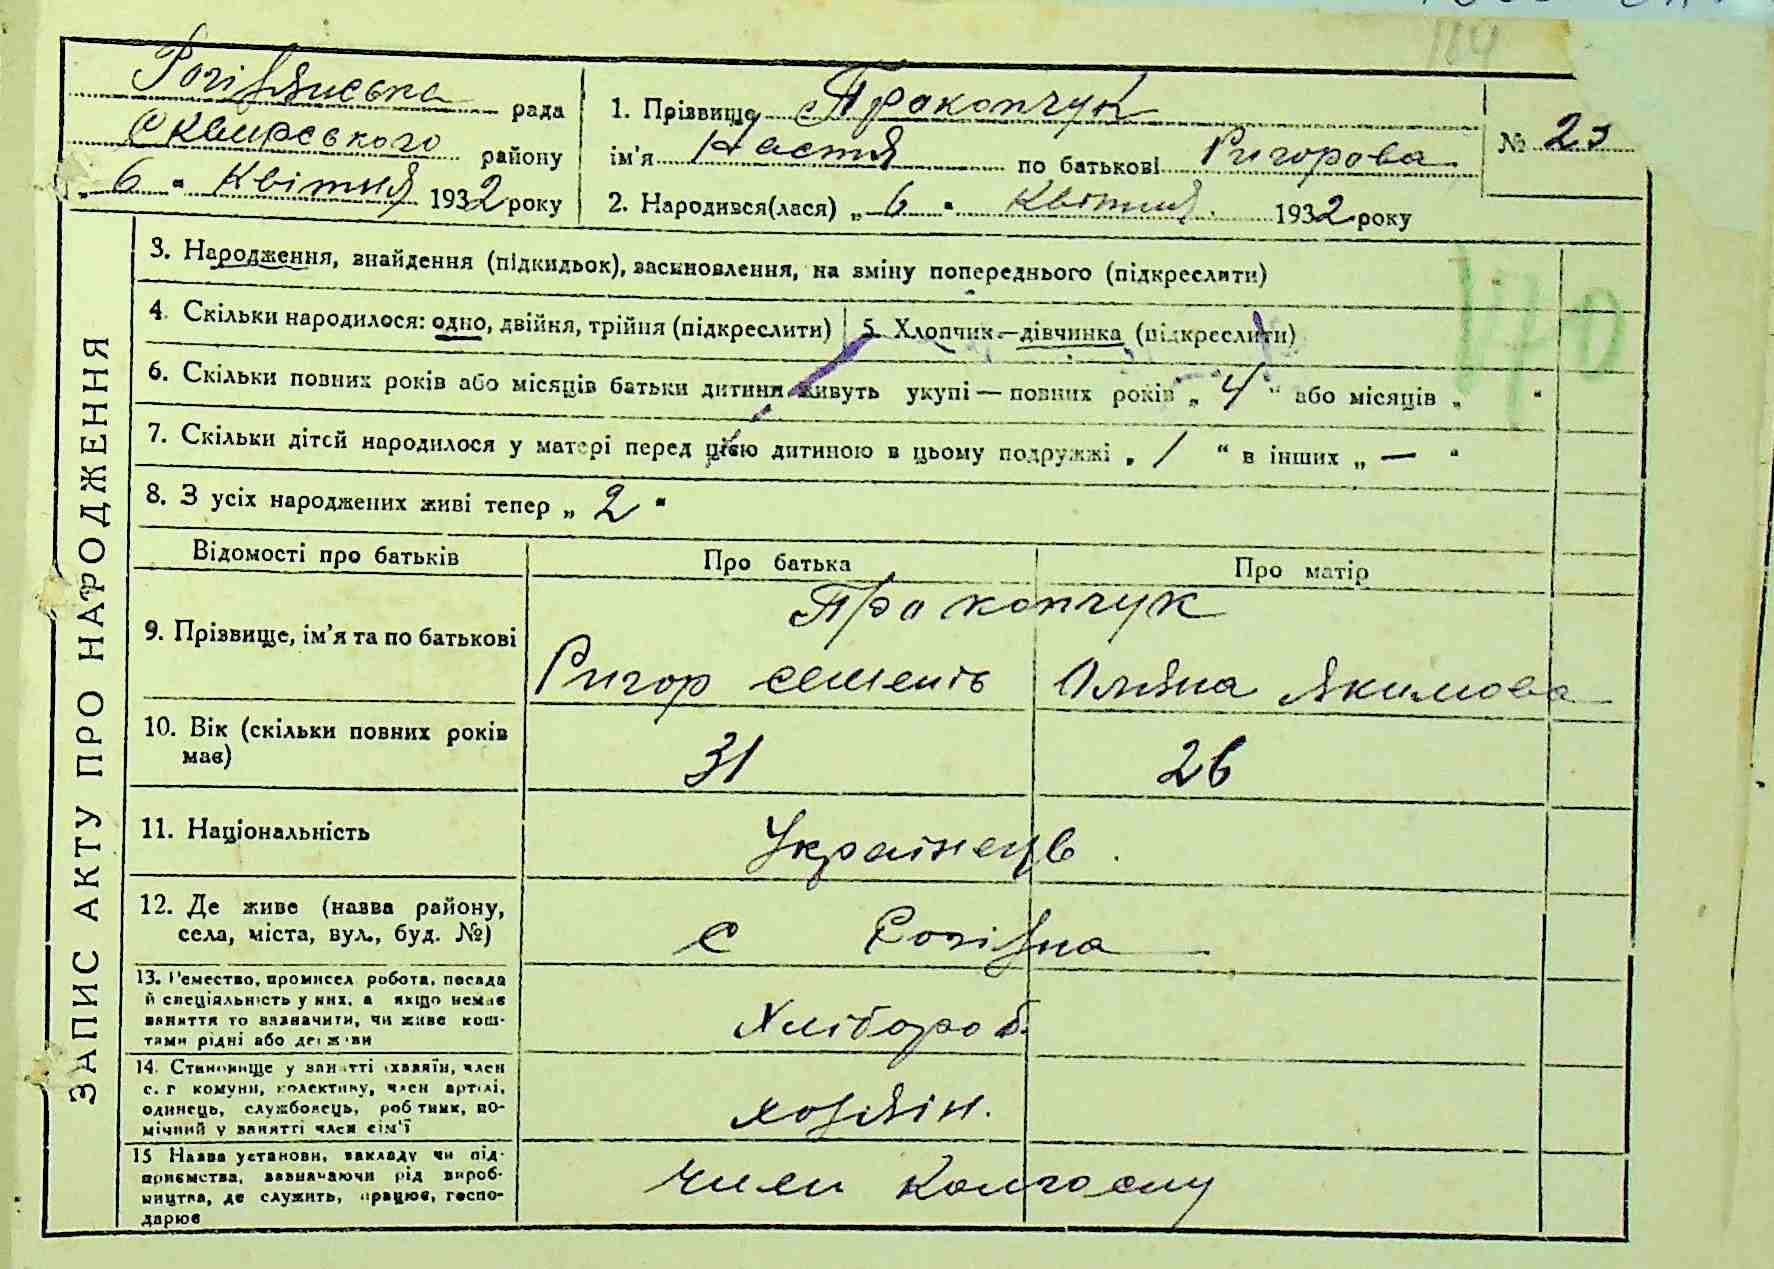 164
Рогізнянська рада
Сквирського району
„ 6 " Квітня 1932 року
1. Прізвище Прокопчук
ім'я Настя по батькові Ригорова
2. Народився(лася) „ 6 " Квітня 1932 року
№ 23
ЗАПИС АКТУ ПРО НАРОДЖЕННЯ
3. Народження, знайдення (підкидьок), засиновлення, на зміну попереднього (підкреслити)
4. Скільки народилося: одно, двійня, трійня (підкреслити) 5. Хлопчик — дівчинка (підкреслити)
6. Скільки повних років або місяців батьки дитини живуть укупі — повних років „ 4 " або місяців „ "
7. Скільки дітей народилося у матері перед цією дитиною в цьому подружжі „ 1 " в інших „ — "
8. З усіх народжених живі тепер „ 2 "
Відомості про батьків Про батька Про матір
Прокопчук
9. Прізвище, ім'я та по батькові Ригор Семенів Оляна Якимова
10. Вік (скільки повних років має) 31 26
11. Національність Українець
12. Де живе (назва району,
села, міста, вул., буд. №) с Рогізна
13. Ремество, промисел робота, посада
й спеціяльність у них, а якщо немає
заняття то зазначити, чи живе кош-
тами рідні або держави
Хлібороб.
14. Становище у занятті (хазяїн, член
с. г комуни, колективу, член артілі,
одинець, службовець, робітник, по-
мічний у занятті член сім'ї
хозяїн.
15 Назва установи, закладу чи під-
приємства, зазначаючи рід вироб-
ництва, де служить, працює, госпо-
дарює
член колгоспу